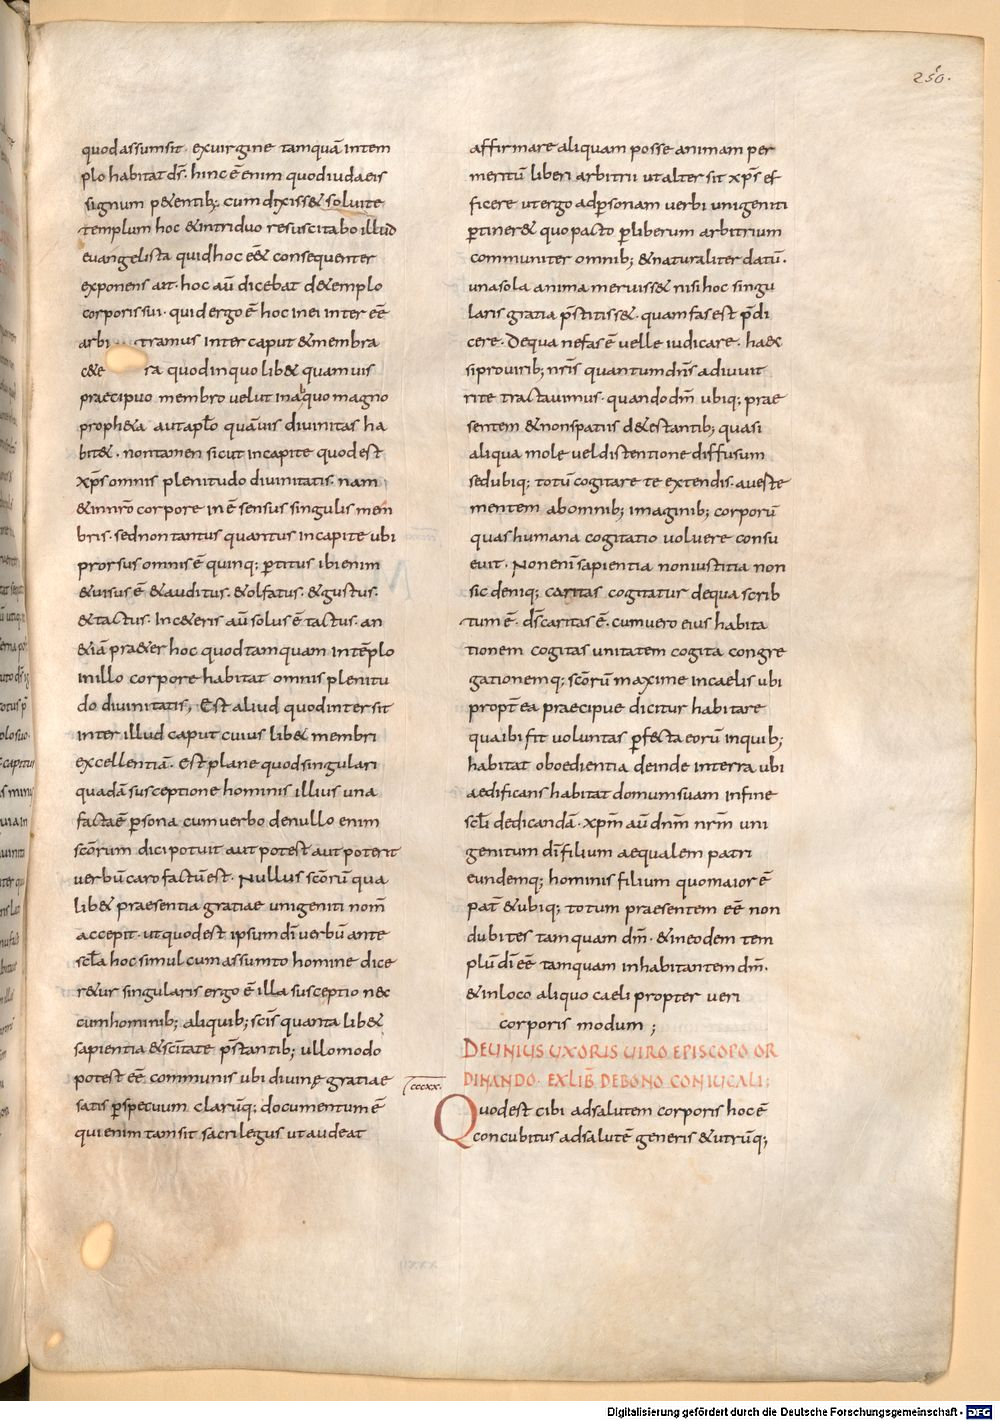 250.
quodassumsit. exuirgine tamquā intem
plo habitat ds̄. hinc ē enim quodiudaeis
signum p&entib; cum dixiss& soluite
templum hoc &intriduo resuscitabo illud
euangelista quidhoc eē& consequenter
exponens ait. hoc aū dicebat d&emplo
corporis sui. quid ergo ē hoc inei inter eē
arbitramus inter caput &membra
c&era quodinquolib& quamuis
praecipuo membro uelut inabquo magno
proph&a autaplo quāuis diuinitas ha
bit&. nontamen sicut incapite quodest
xp̄s omnis plenitudo diuinitatis. nam
&innr̄o corpore in ē sensus singulis mem
bris. sed non tantus quantus incapite ubi
prorsus omnis ē quinq; ptitus ibi enim
&uisus ē &auditus. &olfatus. &gustus.
&tactus. Inc&eris aū solus ē tactus. an
&iā pra&er hoc quodtamquam intēplo
inillo corpore habitat omnis plenitu
do diuinitatis, Est aliud quodintersit
inter illud caput cuius lib& membri
excellentiā. est plane quodsingulari
quadā susceptione hominis illius una
factaē psona cum uerbo denullo enim
scōrum dici potuit aut potest aut poterit
uerbū caro factū est. Nullus scōrū qua
lib& praesentia gratiae unigeniti nom̄
accepit. utquodest ipsum dī uerbū ante
scl̄a hoc simul cum assumto homine dice
r&ur singularis ergo ē illa susceptio nec
cumhominib; aliquib; scīs quanta lib&
sapientia &scītate pstantib; ullomodo
potest eē communis ubi diuinę gratiae
satis pspecuum clarūq; documentum ē
qui enim tam sit sacrilegus ut audeat
affirmare aliquam posse animam per
meritū liberi arbitrii ut alter sit xp̄s ef
ficere ut ergo ad psonam uerbi unigeniti
ptiner& quo pacto pliberum arbitrium
communiter omnib; &naturaliter datū.
una sola anima meruiss& nisi hoc singu
laris gratia pstitiss&. quam fas est pdi
cere. Dequa nefas ē uelle iudicare. haec
siprouirib; nr̄is quantum dn̄s adiuuit
rite tractauimus. quando dm̄ ubiq; prae
sentem &nonspatiis d&estantib; quasi
aliqua mole uel distentione diffusum
sedubiq; totū cogitare te extendis. aueste
mentem abomnib; imaginib; corporū
quas humana cogitatio uoluere consu
euit. Non enī sapientia non iustitia non
sic deniq; caritas cogitatur dequa scrib
tum ē. ds̄ caritas ē. cum uero eius habita
tionem cogitas unitatem cogita congre
gationemq; scōrū maxime incaelis ubi
propt̄ ea praecipue dicitur habitare
quaibi fit uoluntas pfecta eorū inquib;
habitat oboedientia deinde interra ubi
aedificans habitat domum suam infine
scl̄i dedicandā. xp̄m aū dnm̄ nr̄m uni
genitum dī filium aequalem patri
eundemq; hominis filium quomaior ē
pat̄ &ubiq; totum praesentem eē non
dubites tamquam dm̄. &ineodem tem
plū dī eē tamquam inhabitantem dm̄.
&inloco aliquo caeli propter ueri
corporis modum ;
DEUNIUS UXORIS UIRO EPISCOPO OR
DINANDO. EXLIB̄ DEBONO CONIUGALI;
cccxx.
Quodest cibi adsalutem corporis hoc ē
concubitus adsalutē generis &utrūq;
Digitalisierung gefördert durch die Deutsche Forschungsgemeinschaft - DFG